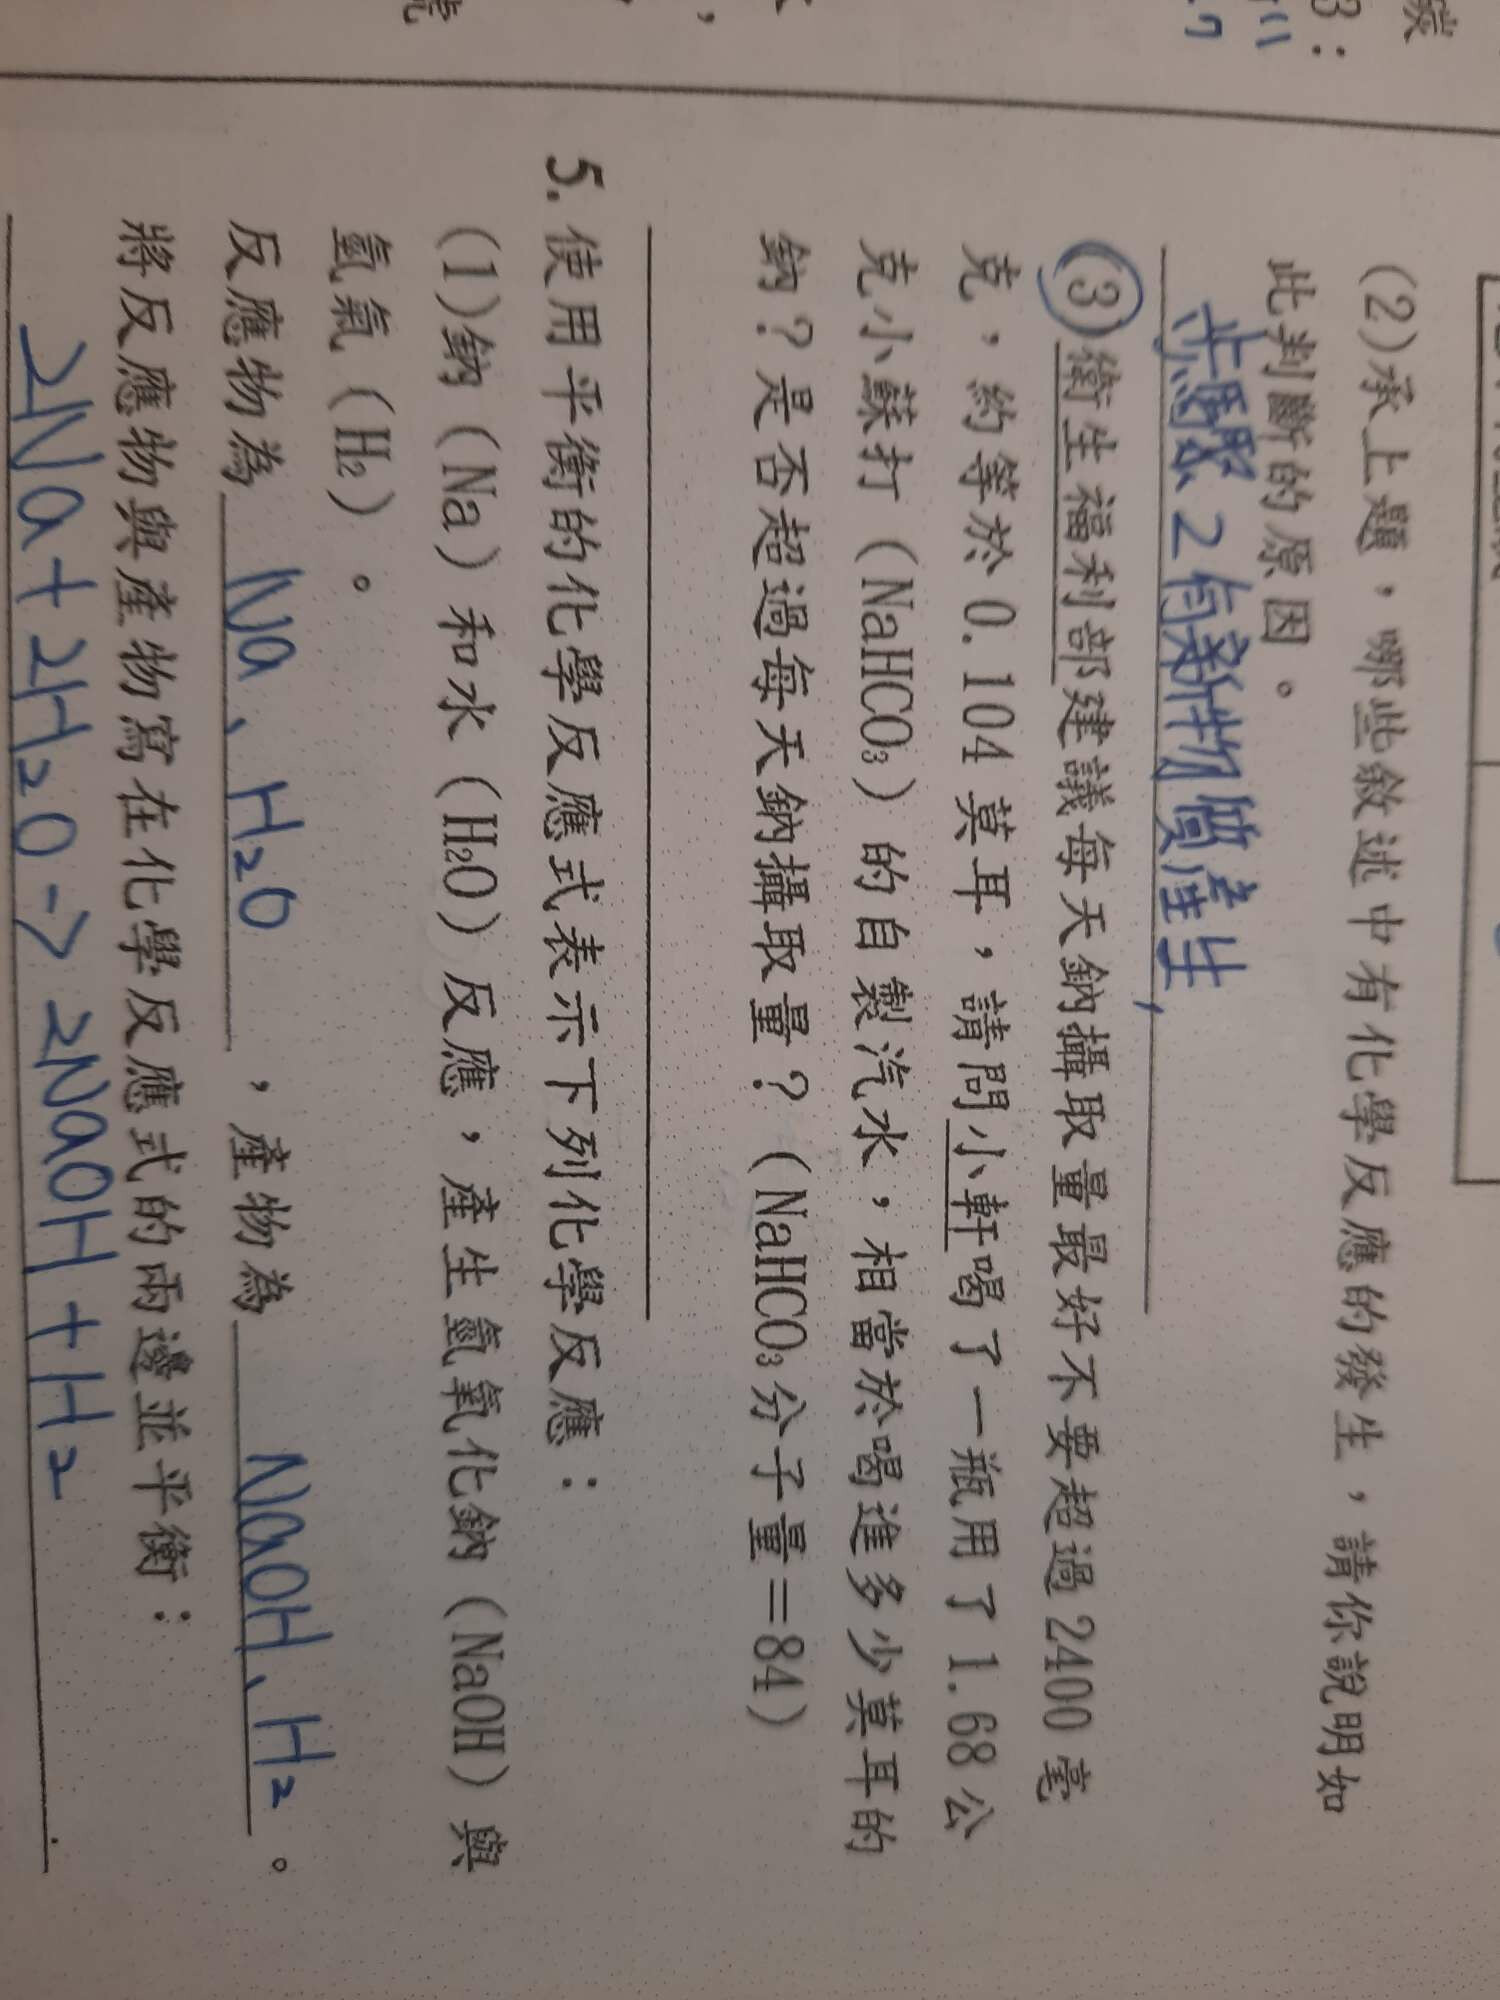 碳
3：
(2)承上題，哪些敘述中有化學反應的發生，請你說明如
此判斷的原因。
步驟2有新物質產生,
(3)衛生福利部建議每天鈉攝取量最好不要超過2400毫
克，約等於0.104莫耳，請問小軒喝了一瓶用了1.68公
克小蘇打（NaHCO₃）的自製汽水，相當於喝進多少莫耳的
鈉？是否超過每天鈉攝取量？（NaHCO₃分子量＝84）
5.使用平衡的化學反應式表示下列化學反應：
(1)鈉（Na）和水（H₂O）反應，產生氫氧化鈉（NaOH）與
氫氣（H₂）。
反應物為 Na、H₂O ，產物為 NaOH、H₂ 。
將反應物與產物寫在化學反應式的兩邊並平衡：
2Na+2H₂O->2NaOH+H₂